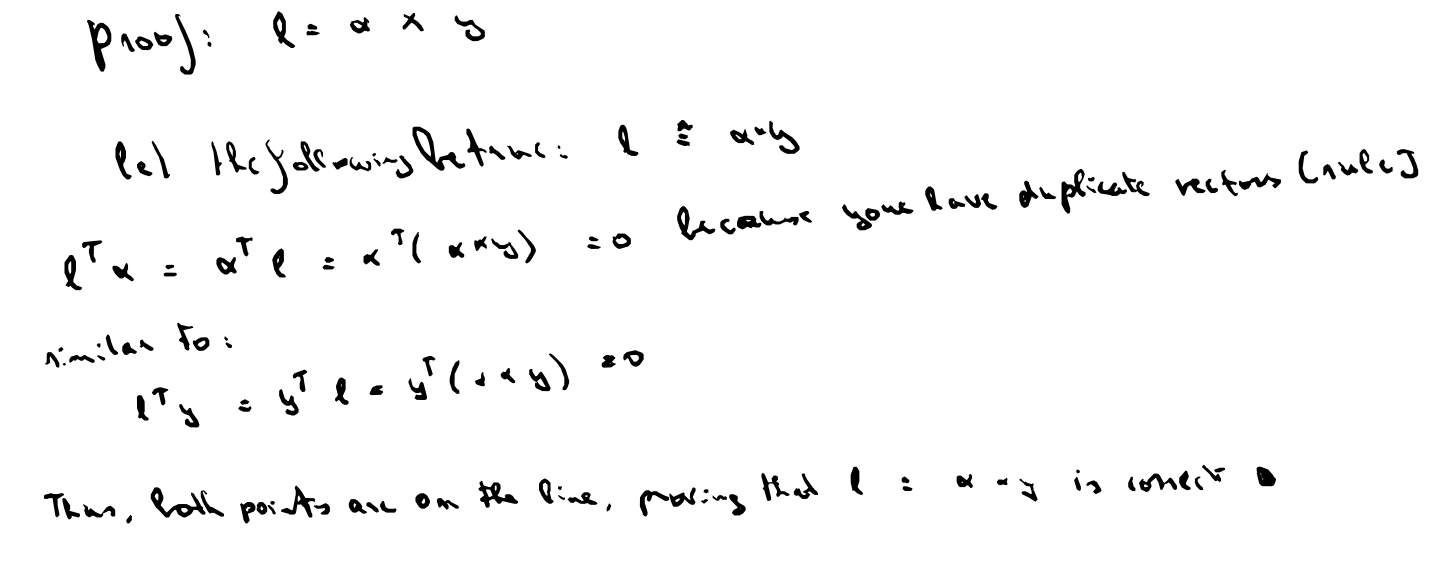 Proof: l = x × y
let the following be true: l ≙ x × y
l^T x = x^T l = x^T( x × y) = 0 because you have duplicate vectors [rule]
similar to:
l^T y = y^T l = y^T(x × y) = 0
Thus, both points are on the line, proving that l = x × y is correct